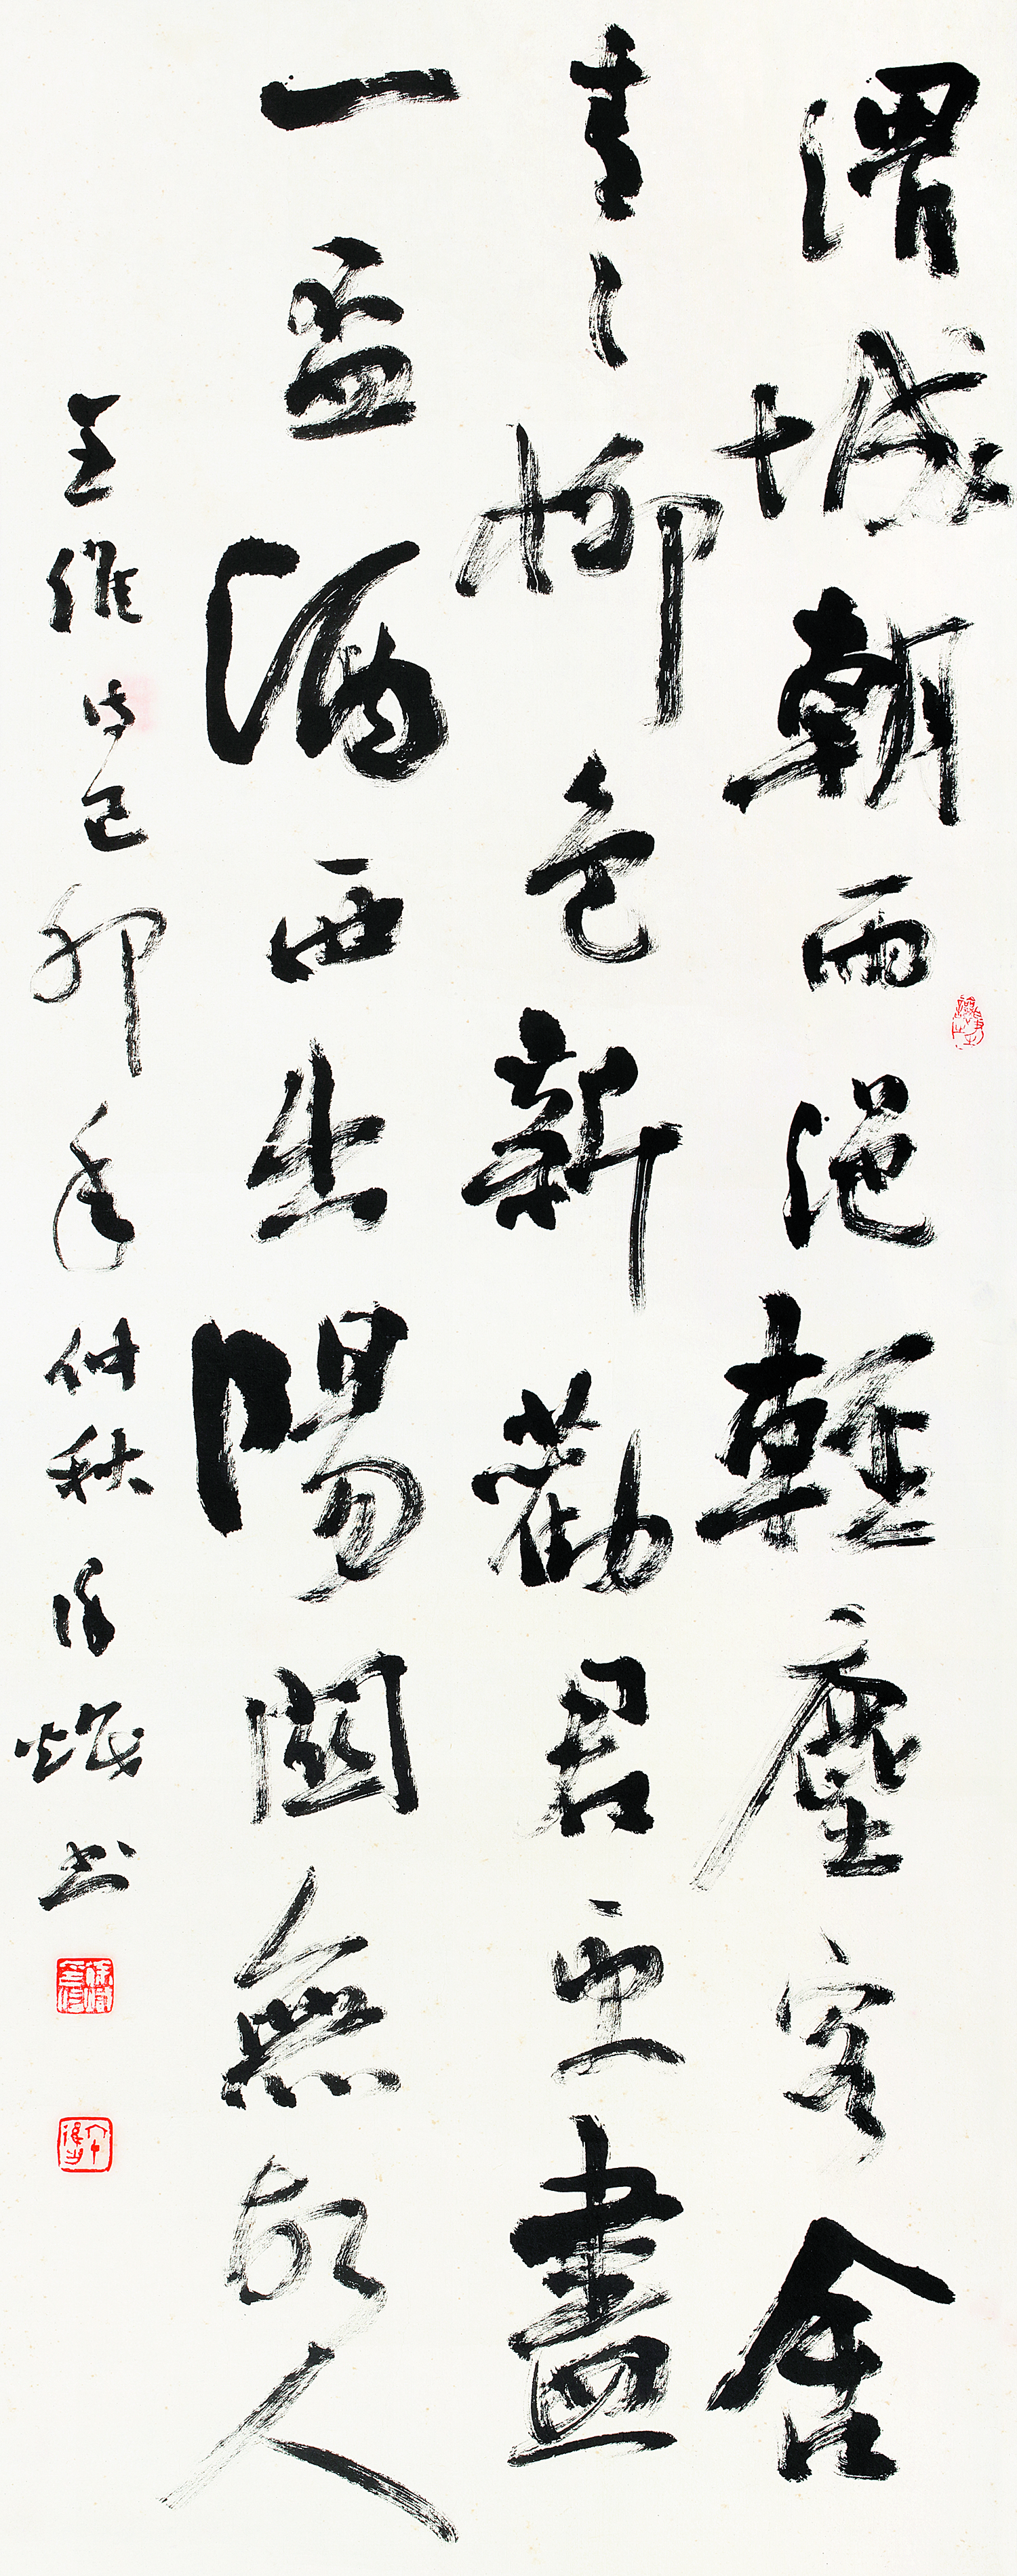 渭城朝雨浥輕塵客舍
青〻柳色新勸君更盡
一盃酒西出陽關無故人
王維詩己卯年仲秋徐書